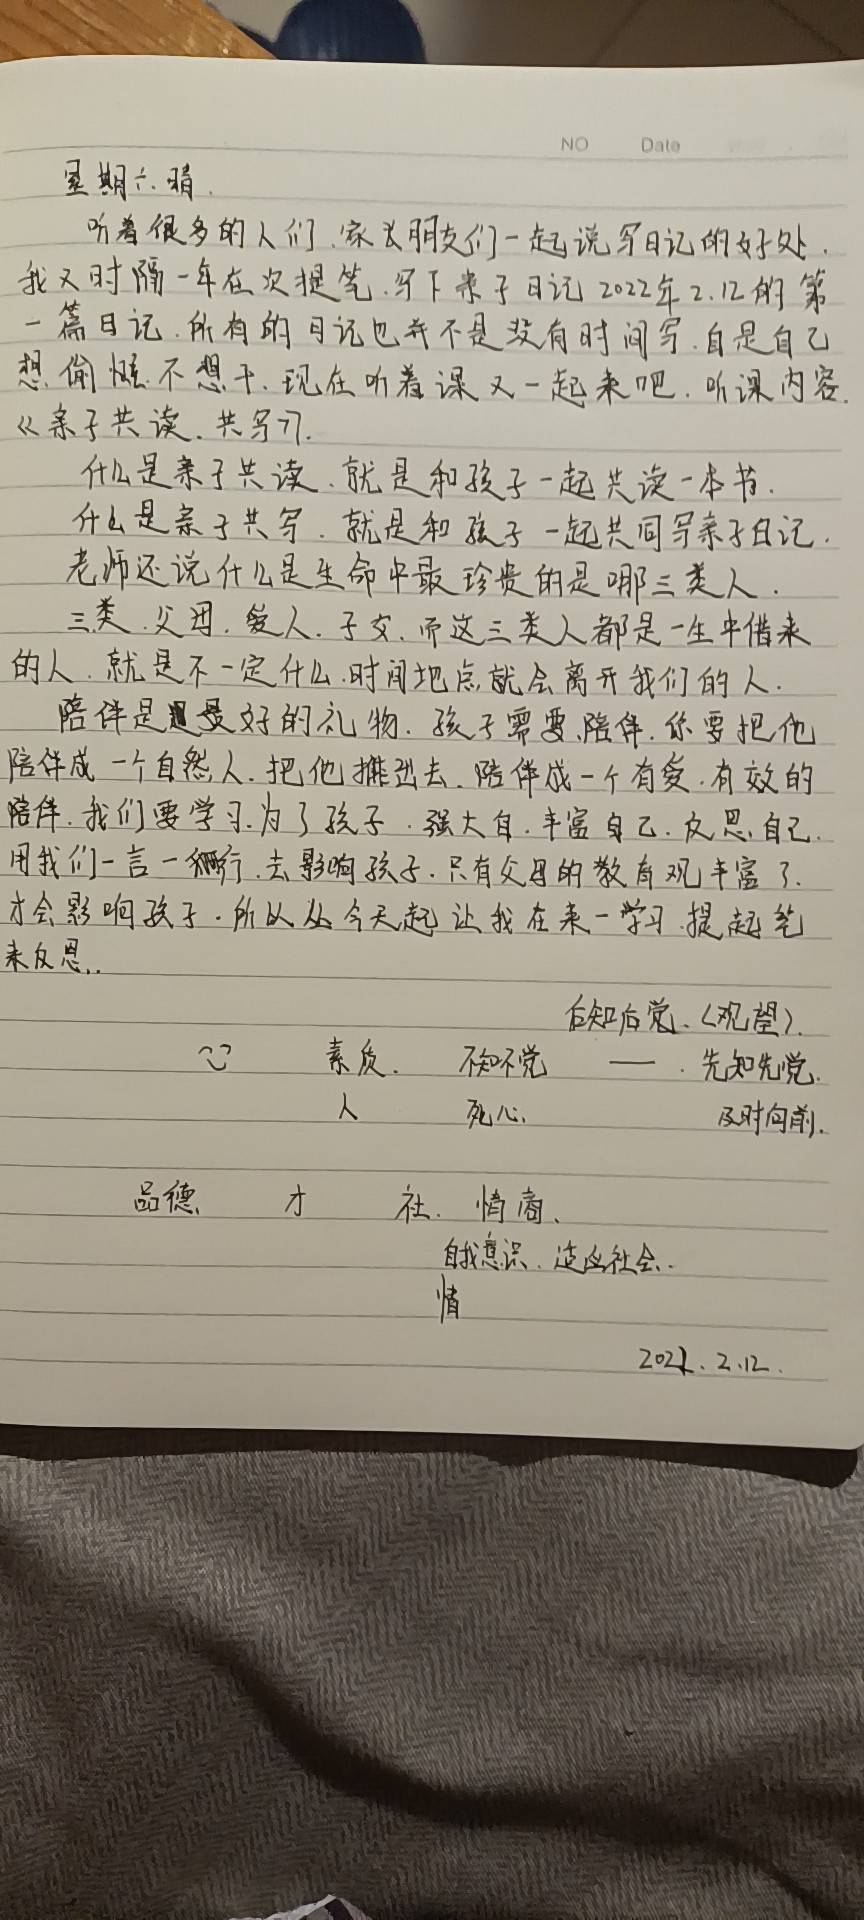 NO Date
星期六.晴.
听着很多的人们.家长朋友们一起说写日记的好处.
我又时隔一年在次提笔.写下亲子日记2022年2.12的第
一篇日记.所有的日记也并不是没有时间写.自是自己
想偷懒.不想干.现在听着课又一起来吧.听课内容.
《亲子共读.共写》.
什么是亲子共读.就是和孩子一起共读一本书.
什么是亲子共写.就是和孩子一起共同写亲子日记.
老师还说什么是生命中最珍贵的是哪三类人.
三类.父母.爱人.子女.而这三类人都是一生中借来
的人.就是不一定什么.时间地点就会离开我们的人.
陪伴是最好的礼物.孩子需要陪伴.你要把他
陪伴成一个自然人.把他推出去.陪伴成一个有爱.有效的
陪伴.我们要学习.为了孩子.强大自.丰富自己.反思自己.
用我们一言一行.去影响孩子.只有父母的教育观丰富了.
才会影响孩子.所以从今天起让我在来一学习.提起笔
来反思..
后知后觉.(观望).
素质. 不知不觉 — . 先知先觉.
人 死心. 及时向前.
品德. 才 社. 情商.
自我意识.适应社会..
情
2022.2.12.